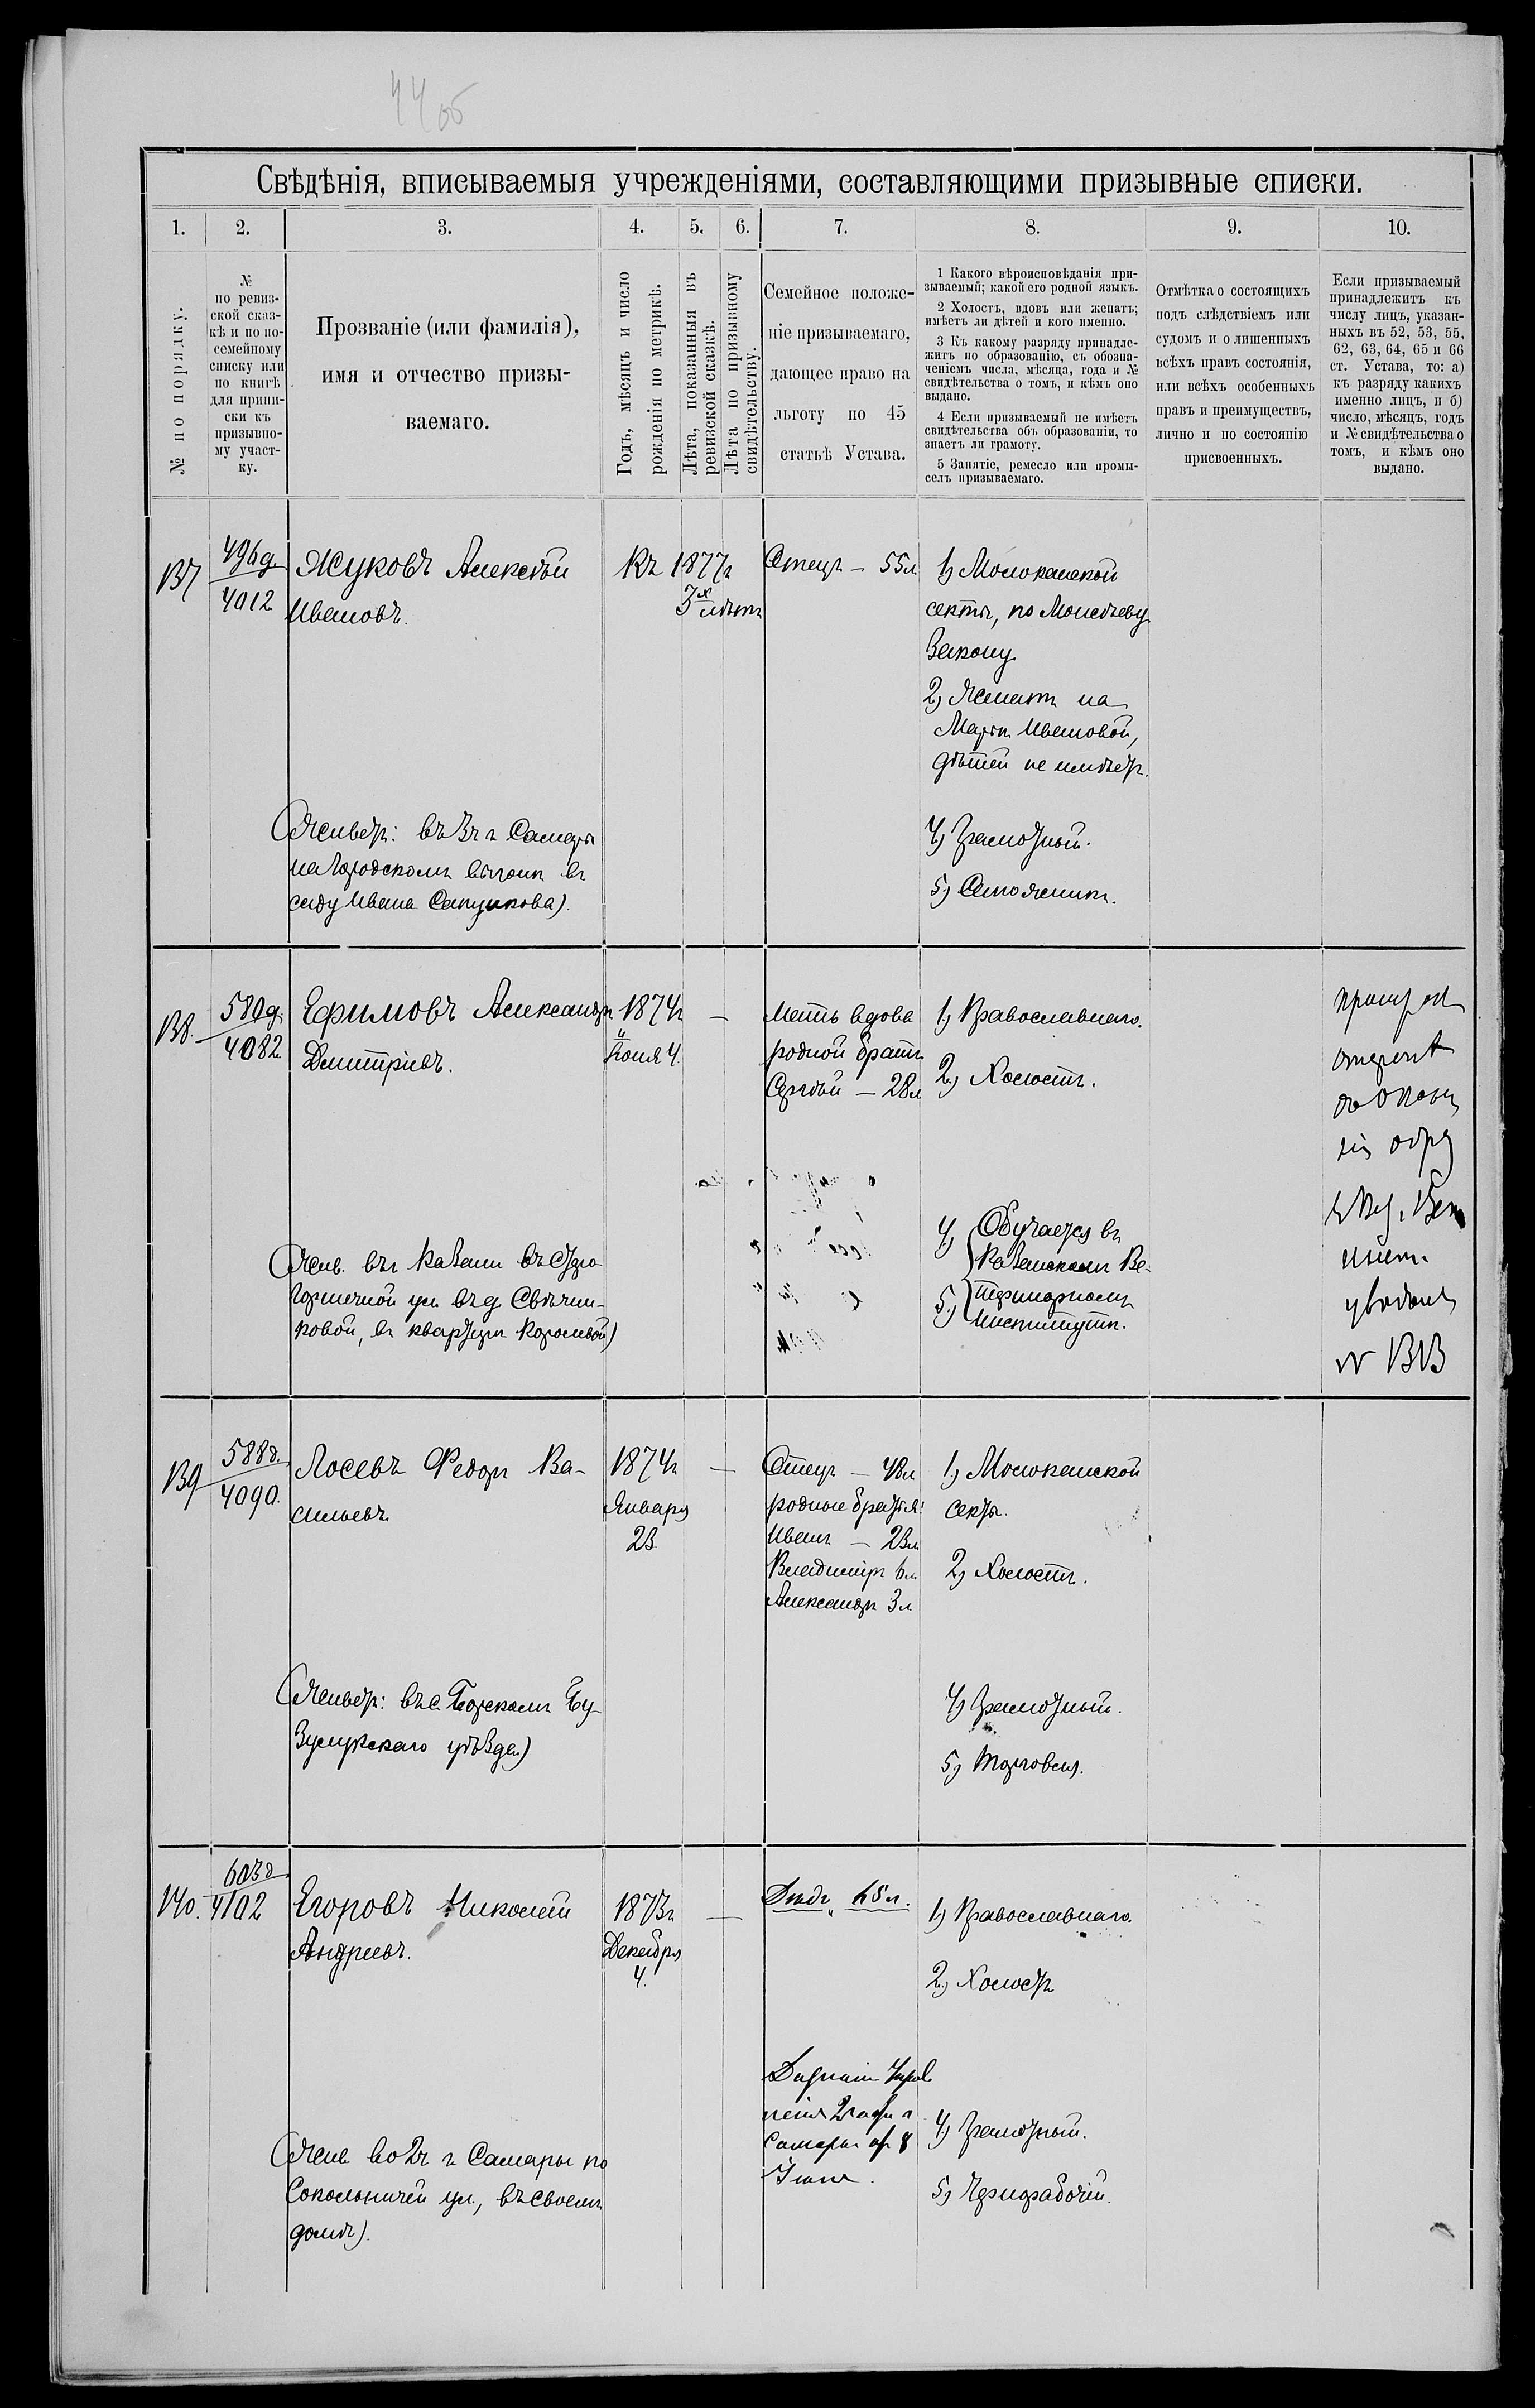 44 об
Свѣдѣнія, вписываемыя учрежденіями, составляющими призывные списки.
1. 2. 3. 4. 5. 6. 7. 8. 9. 10.
№ по порядку.
№
по ревиз-
ской сказ-
кѣ и по по-
семейному
списку или
по книгѣ
для припи-
ски къ
призывно-
му участ-
ку.
Прозваніе (или фамилія),
имя и отчество призы-
ваемаго.
Годъ, мѣсяцъ и число
рожденія по метрикѣ.
Лѣта, показанныя въ
ревизской сказкѣ.
Лѣта по призывному
свидѣтельству.
Семейное положе-
ніе призываемаго,
дающее право на
льготу по 45
статьѣ Устава.
1 Какого вѣроисповѣданія при-
зываемый; какой его родной языкъ.
2 Холостъ, вдовъ или женатъ;
имѣетъ ли дѣтей и кого именно.
3 Къ какому разряду принадле-
житъ по образованію, съ обозна-
ченіемъ числа, мѣсяца, года и №
свидѣтельства о томъ, и кѣмъ оно
выдано.
4 Если призываемый не имѣетъ
свидѣтельства объ образованіи, то
знаетъ ли грамоту.
5 Занятіе, ремесло или промы-
селъ призываемаго.
Отмѣтка о состоящихъ
подъ слѣдствіемъ или
судомъ и о лишенныхъ
всѣхъ правъ состоянія,
или всѣхъ особенныхъ
правъ и преимуществъ,
лично и по состоянію
присвоенныхъ.
Если призываемый
принадлежитъ къ
числу лицъ, указан-
ныхъ въ 52, 53, 55,
62, 63, 64, 65 и 66
ст. Устава, то: а)
къ разряду какихъ
именно лицъ, и б)
число, мѣсяцъ, годъ
и № свидѣтельства о
томъ, и кѣмъ оно
выдано.
137
496д.
4012
Жуковъ Алексѣй
Ивановъ.
Къ 1877г
3х лѣтъ
Отецъ – 55л
1) Молоканской
секты, по Моисѣеву
Закону
2) Женатъ на
Марьѣ Ивановой,
дѣтей не имѣетъ.
4) Грамотный.
5) Сапожникъ.
(Живетъ: въ 3ч г Самары
на Городскомъ выгонѣ въ
саду Ивана Сапункова).
138.
580д.
4082
Ефимовъ Александръ
Дмитріевъ.
1874г
Іюля 4.
—
Мать вдова
родной братъ
Сергѣй – 28л
1) Православнаго.
2) Холостъ.
4) Обучается въ
Казанскомъ Ве-
5) теринарномъ
Институтѣ.
(Жив. въ г Казани въ
ул. въ д Свѣчни-
ковой, въ квартирѣ Королевой)
№ 133
139
588д.
4090.
Лосевъ Федоръ Ва-
сильевъ.
1874г
Января
23.
—
Отецъ – 48л
родные братья:
Иванъ – 23л
Владиміръ 6л
Александръ 3л
1) Молоканской
секты.
2) Холостъ.
4) Грамотный.
5) Торговля.
(Живетъ: въ с Борскомъ Бу-
зулукскаго уѣзда.)
140.
603д
4102
Егоровъ Николай
Андреевъ.
1873г
Декабря
4.
—
Дядя 65л.
1) Православнаго.
2) Холостъ
4) Грамотный.
5) Чернорабочій.
(Жив. во 2ч г Самары по
Сокольничей ул., въ своемъ
домѣ).